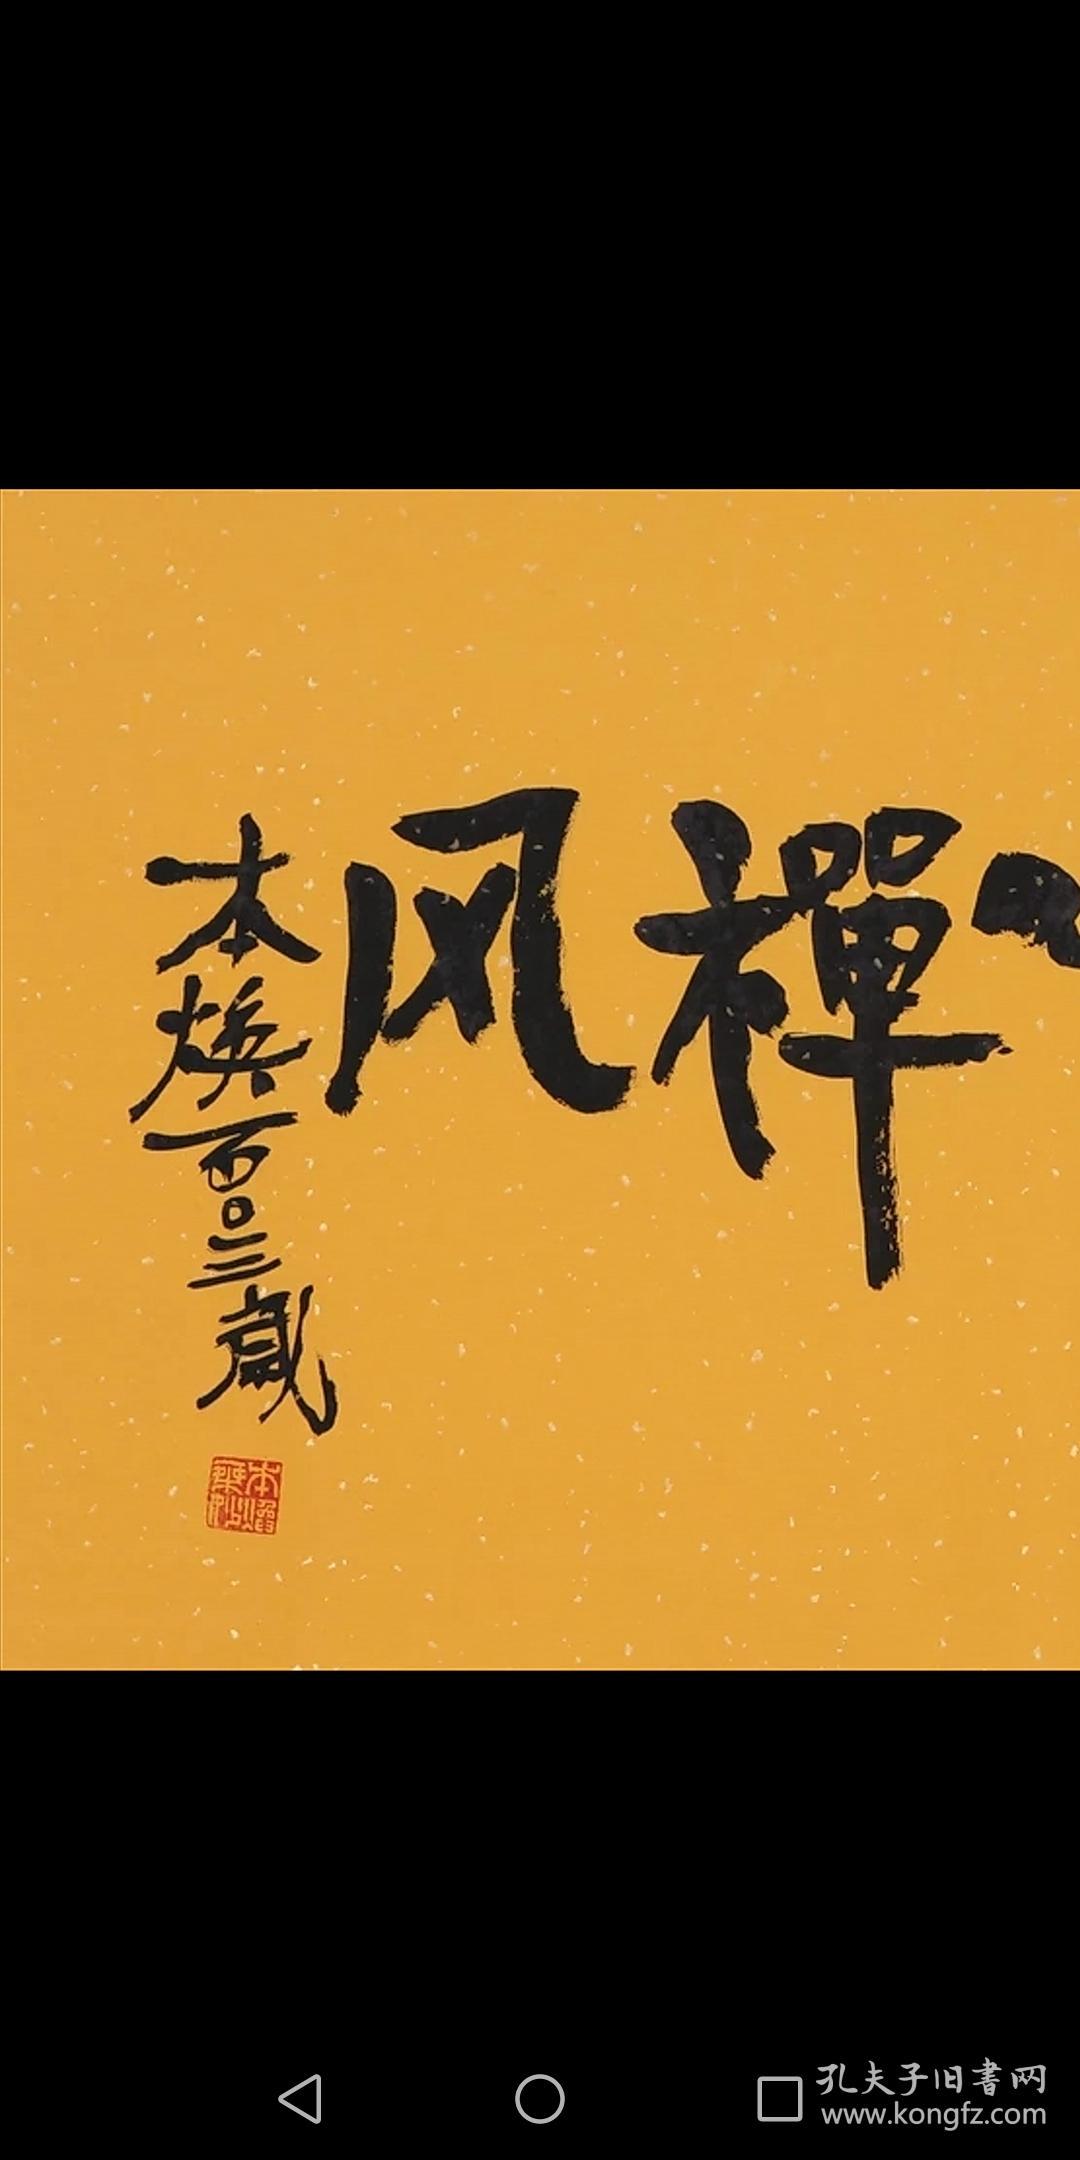 禪风
本焕一百〇三歲
孔夫子旧書网
www.kongfz.com